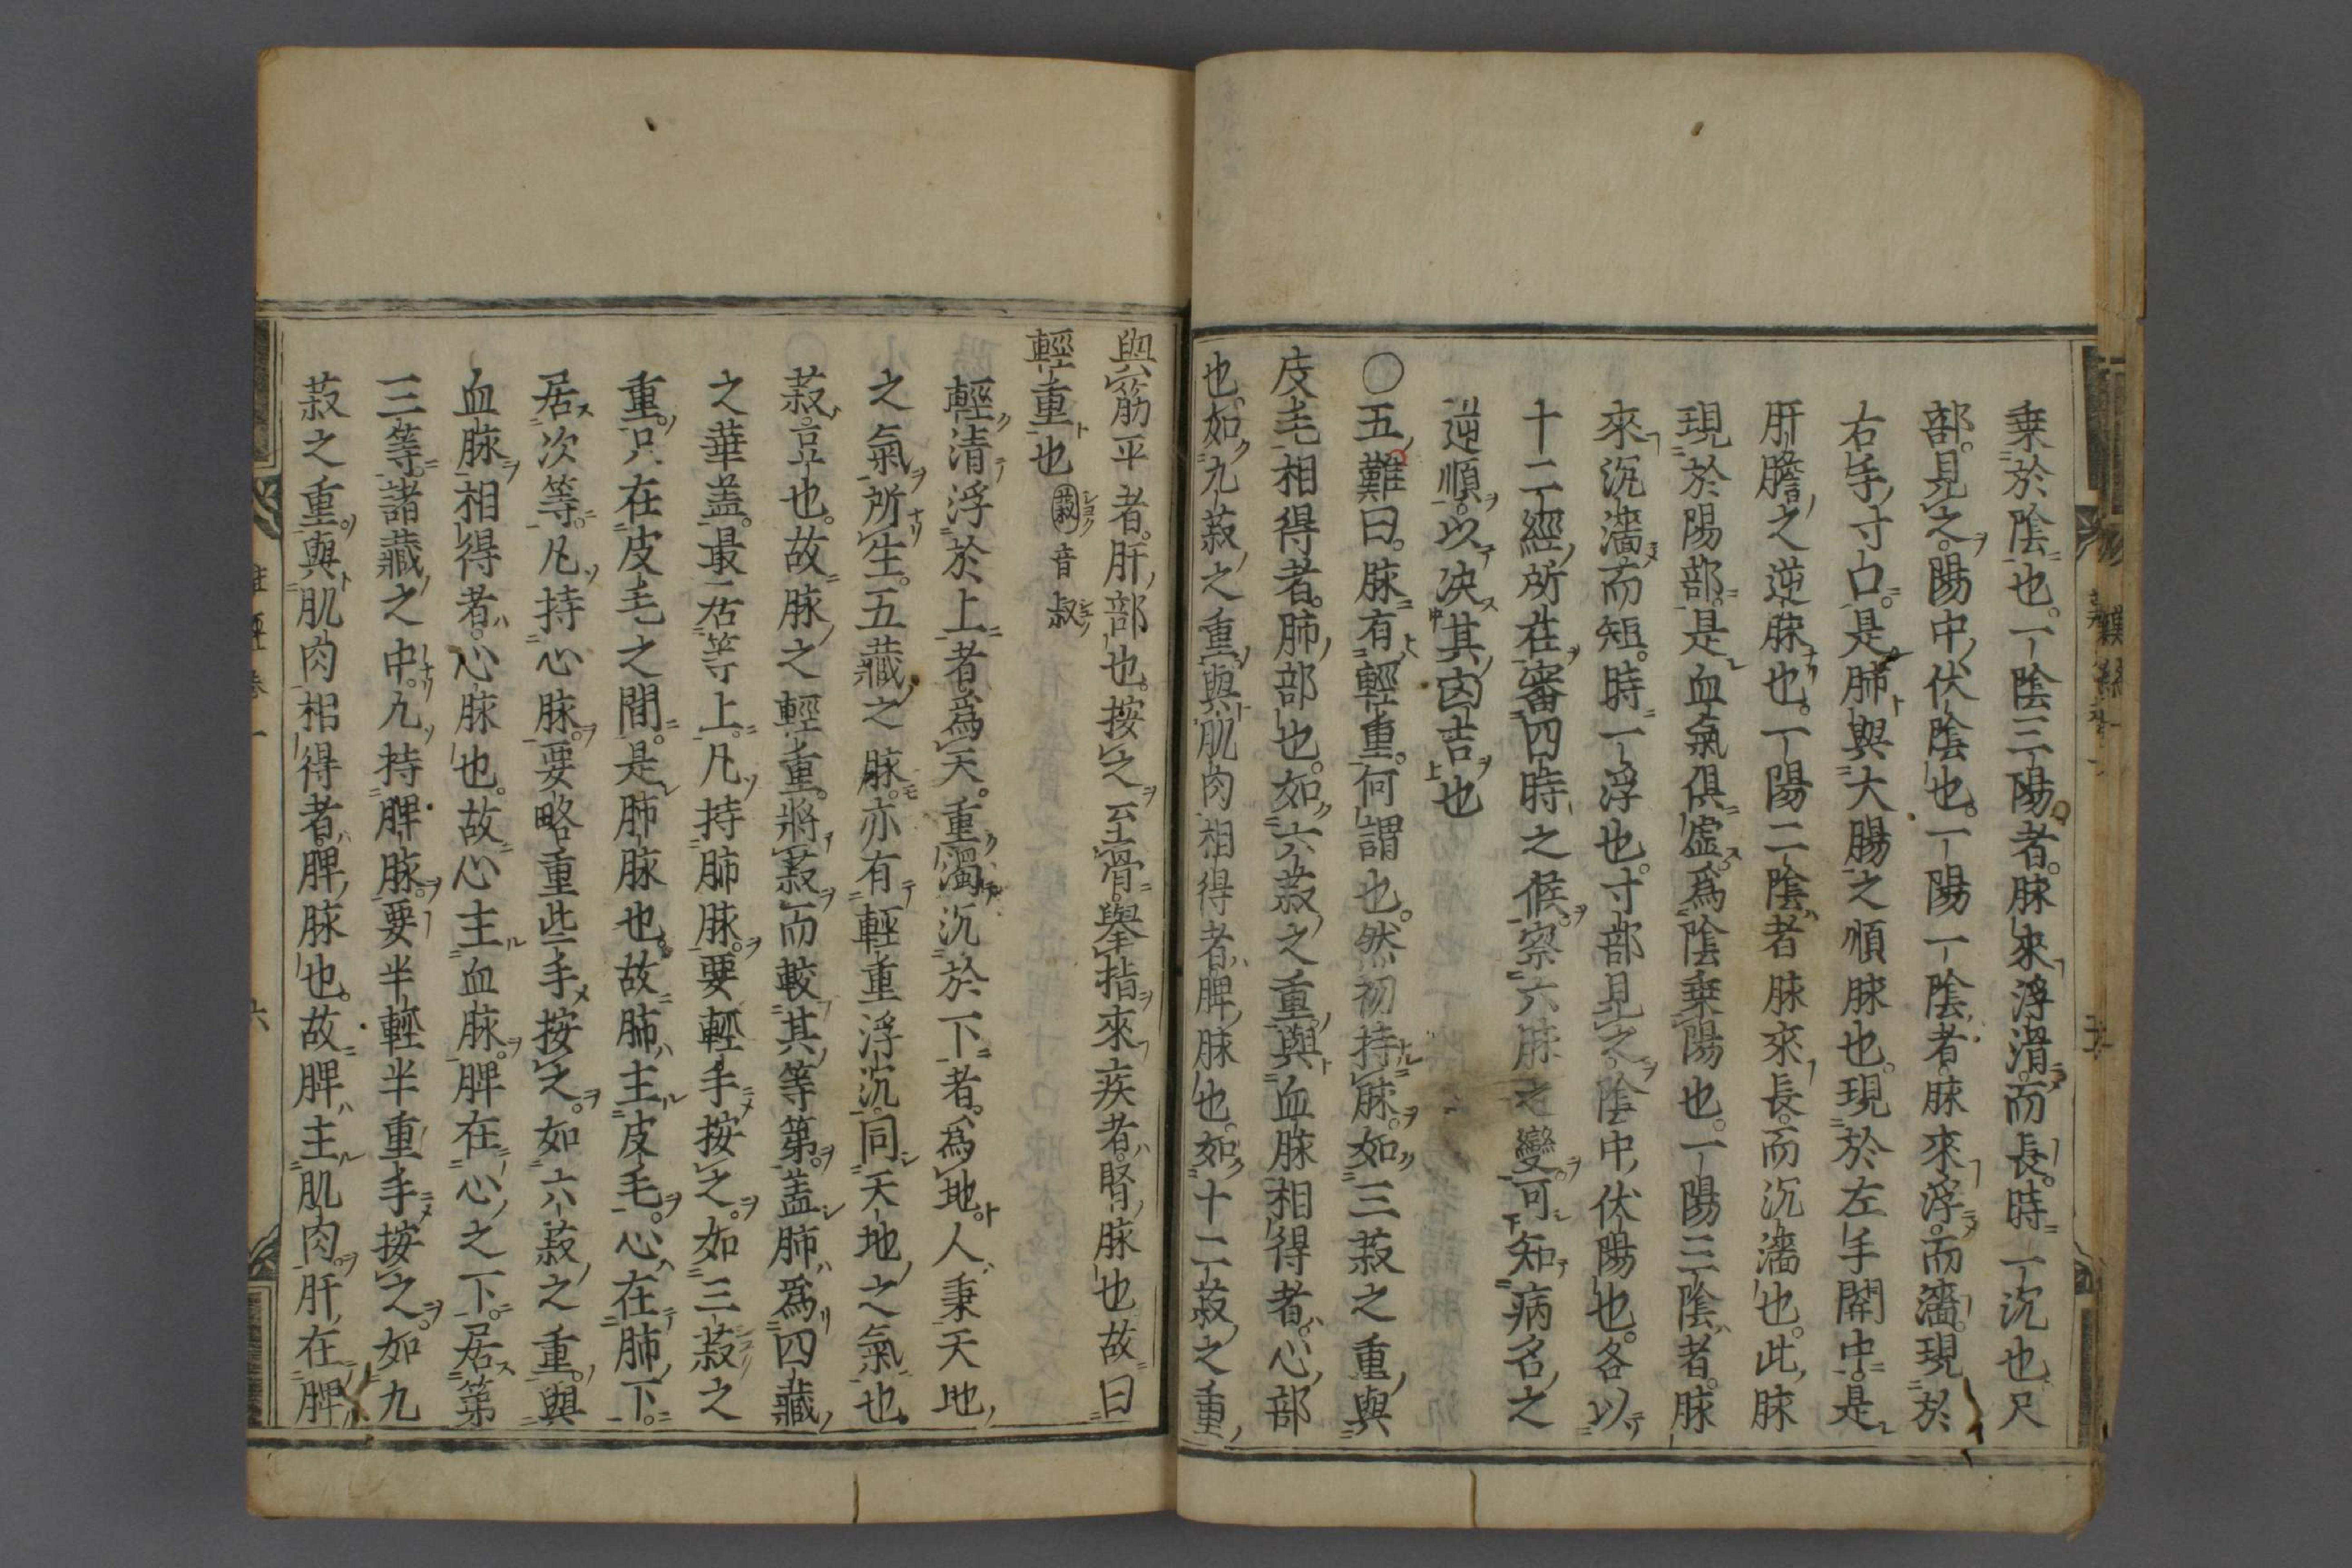 乗於陰也。一陰三陽者。脉來浮滑而長。時一沉也尺
部。見之。陽中伏陰也。一陽一陰者。脉來浮。而濇。現於
右手寸口。是肺與大腸之順脉也。現於左手關中。是
肝膽之逆脉也。一陽二陰者脉來長。而沉濇也。此脉
現於陽部。是血氣俱虚。爲陰乗陽也。一陽三陰者。脉
來沉濇而短。時一浮也。寸部見之。陰中伏陽也。各以
十二經所在審四時之候。察六脉之變。可知病名之
逆順。以决其凶吉也
〇五難曰。脉有輕重。何謂也。然初持脉。如三菽之重與
皮毛相得者。肺部也。如六菽之重與血脉相得者。心部
也。如九菽之重與肌肉相得者脾脉也。如十二菽之重
與筋平者。肝部也。按之至骨。擧指來疾者。腎脉也故曰
輕重也 菽音叔
輕清浮於上者爲天。重濁沉於下者。爲地。人秉天地
之氣所生。五藏之脉。亦有輕重浮沉。同天地之氣也
菽。豆也。故脉之輕重。將菽而較其等第。蓋肺爲四藏
之華盖。最居等上。凡持肺脉。要輕手按之。如三菽之
重。只在皮毛之間。是肺脉也。故肺主皮毛。心在肺下。
居次等。凡持心脉。要略重些手按之。如六菽之重。與
血脉相得者。心脉也。故心主血脉。脾在心之下。居第
三等。諸藏之中。凡持脾脉。要半輕半重手按之。如九
菽之重。與肌肉相得者。脾脉也。故脾主肌肉。肝在脾
難經卷一
六